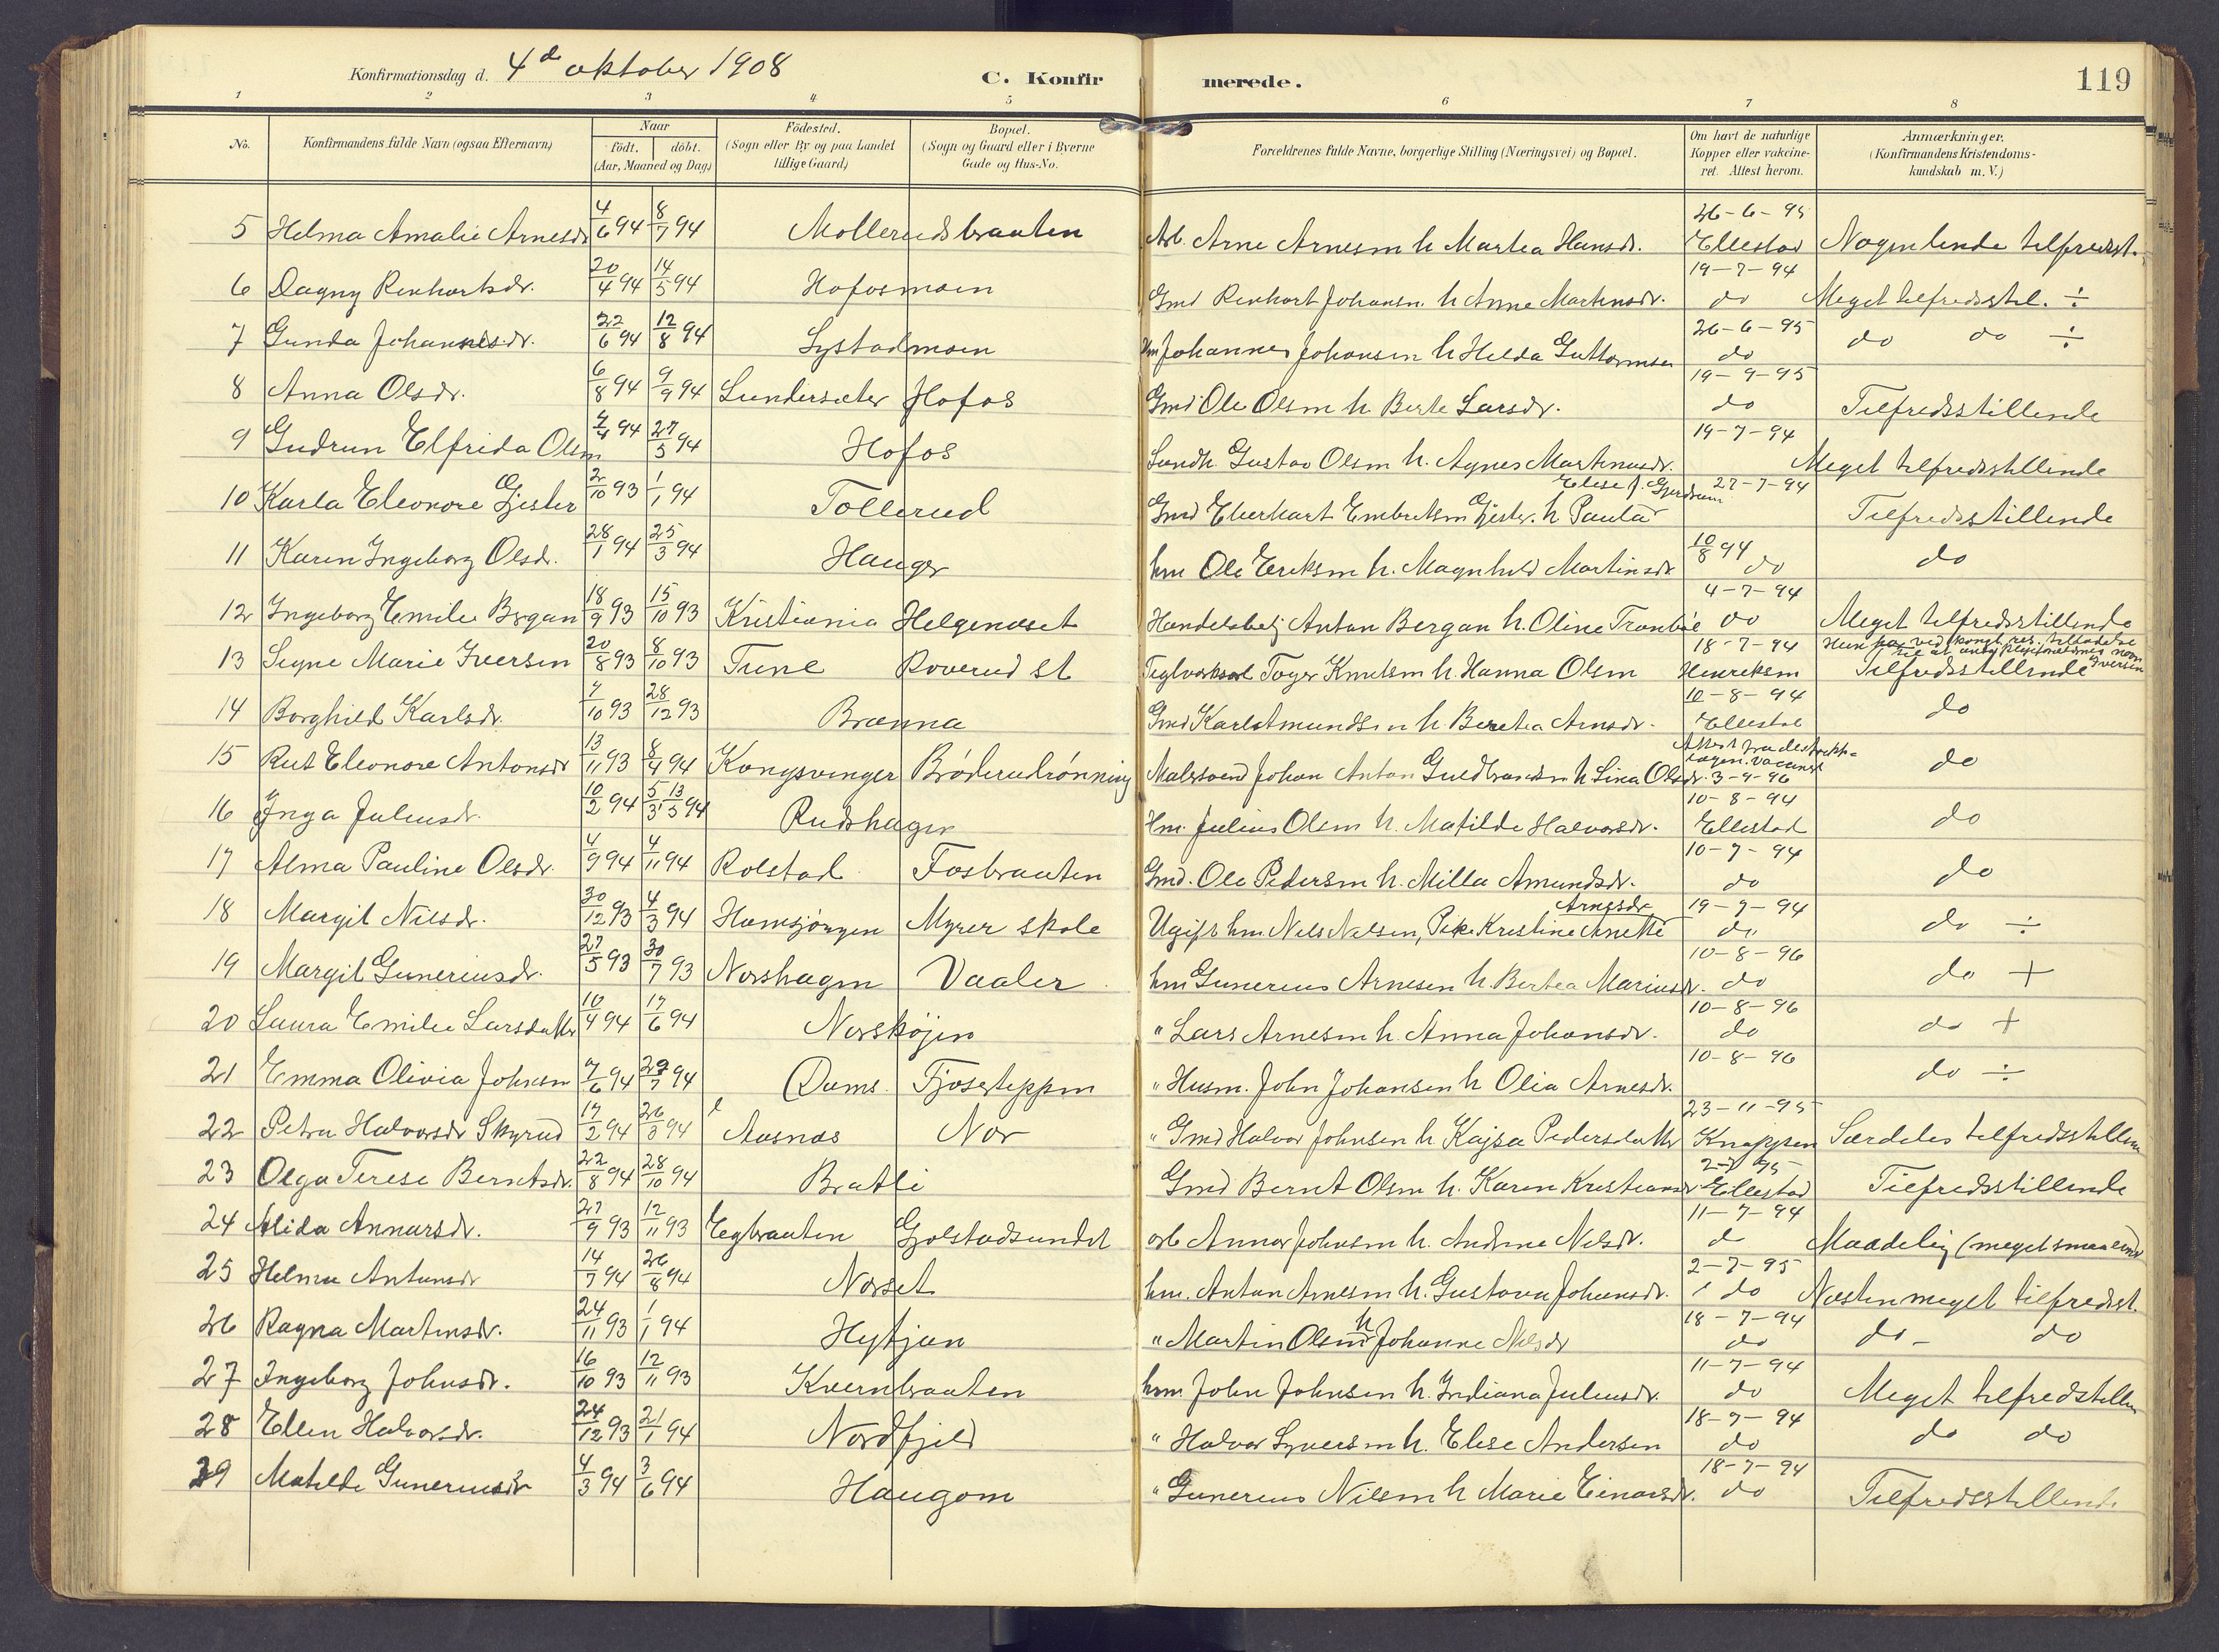 Konfirmationsdag d. 4de oktober 1908 C. Konfirmerede. 119
1 2 3 4 5 6 7 8
No. Konfirmandens fulde Navn (ogsaa Efternavn) Naar födt. döbt. (Aar, Maaned og Dag) Födested. (Sogn eller By og paa Landet tillige Gaard) Bopæl. (Sogn og Gaard eller i Byerne Gade og Hus-No. Forældrenes fulde Navne, borgerlige Stilling (Næringsvei) og Bopæl. Om havt de naturlige Kopper eller vakcineret. Attest herom. Anmærkninger. (Konfirmandens Kristendomskundskab m. V.)
5 Helma Amalie Arnesdr 4/6 94 8/7 94 Mollerudsbraaten Arb. Arne Arnesen h Martea Hansdr. 26-6-95 Ellestad Nogenlunde tilfredsst.
6 Dagny Renhartsdr. 20/4 94 14/5 94 Hofosmoen Gmd Renhart Johansen. h Anne Martinsdr. 19-7-94 do Meget tilfredsstil. ÷
7 Gunda Johannesdr. 22/6 94 12/8 94 Lystadmoen Hm Johannes Johansen h Helda Guttormsen 26-6-95 do do do ÷
8 Anna Olsdr. 6/8 94 9/9 94 Lundersæter Hofos Gmd Ole Olsen h. Berte Larsdr. 19-9-95 do Tilfredsstillende
9 Gudrun Elfrida Olsen 2/4 94 27/5 94 Hofos Landh. Gustav Olsen h. Agnes Martinusdr. 19-7-94 Meget tilfredsstillende
10 Karla Eleonore Gjester 2/10 93 1/1 94 Tollerud Gmd Eberhart Embretsen Gjester. h Paula Elise J. Gjerdrum 27-7-94 Tilfredsstillende
11 Karen Ingeborg Olsdr. 28/1 94 25/3 94 Hauger hm Ole Eriksen h. Magnhild Martinsdr 10/8 94 do do
12 Ingeborg Emilie Bergan 18/9 93 15/10 93 Kristiania Helgenæset Handelsbetj Anton Bergan h. Oline Tranbøe 4-7-94 do Meget tilfredsstillende
13 Signe Marie Iversen 20/8 93 8/10 93 Tune Roverud st Teglverksarb Toger Knutsen h. Hanna Olsen 18-7-94 Henriksen Hun har ved kongl. res. tilladelse til at antage Plejeforældrenes navn Iversen Tilfredsstillende
14 Borghild Karlsdr. 7/10 93 28/12 93 Brænna Gmd Karl Amundsen h. Beretea Arnesdr. 10-8-94 Ellestad do
15 Rut Eleonore Antonsdr 13/11 93 8/4 94 Kongsvinger Bröderudrönning Malersvend Johan Anton Guldbrandsen h Lina Olsdr. Attest fra 3-4-96 do
16 Inga Juliusdr. 10/2 94 5/3 13/5 94 Rudshagen Hm. Julius Olsen h. Matilde Halvorsdr. 10-8-94 Ellestad do
17 Alma Pauline Olsdr. 4/9 94 4/11 94 Rolstad Fosbraaten Gmd. Ole Pedersen h. Milla Amundsdr. 10-7-94 do do
18 Margit Nilsdr. 30/12 93 4/3 94 Hamsjöngen Myrer skole Ugift hm. Nils Nilsen, Pike Kristine Anette Arnesdr 19-9-94 do do ÷
19 Margit Guneriusdr. 27/5 93 30/7 93 Norshagen Vaaler hm Gunerius Arnesen h. Bertea Mariusdr. 10-8-96 do do +
20 Laura Emilie Larsdatter 10/4 94 17/6 94 Norsköjen " Lars Arnesen h. Anna Johansdr. 10-8-96 do do +
21 Emma Olivia Johnsen 9/6 94 29/7 94 Doms Fjöserteppen " Husm. John Johansen h Olia Arnesdr. 10-8-96 do ÷
22 Petra Halvorsdr Skyrud 17/2 94 26/3 94 Aasnæs Nor " Gmd Halvor Johnsen h Kajsa Pedersdatter 23-11-95 Knappen Særdeles tilfredsstillen
23 Olga Terese Berntsdr. 22/8 94 28/10 94 Bratli Gmd Bernt Olsen h. Karen Kristiansdr 2-7 95 Ellestad Tilfredsstillende
24 Alida Annarsdr. 27/9 93 12/11 93 Egbraaten Gjolstadsundet arb Annar Johnsen h. Andrine Nilsdr. 11-7-94 d Maadelig (meget
25 Helma Antonsdr 14/7 94 26/8 94 Norset hm. Anton Arnesen h. Gustava Johansdr. 2-7-95 do Næsten meget tilfredsst.
26 Ragna Martinsdr. 24/11 93 1/1 94 Hytjan " Martin Olsen h Johanne Nilsdr 18-7-94 do do - do
27 Ingeborg Johnsdr. 16/10 93 12/11 93 Kvernbraaten hm. John Johnsen h. Indiana Juliusdr. 11-7-94 do Meget tilfredstillen
28 Ellen Halvorsdr. 24/12 93 21/1 94 Nordfjeld " Halvor Syversen h. Elise Andersen 18-9-94 do do do
29 Matilde Guneriusdr 4/3 94 3/6 94 Haugom " Gunerius Nilsen h Marie Einarsdr. 18-7-94 do Tilfredsstillende